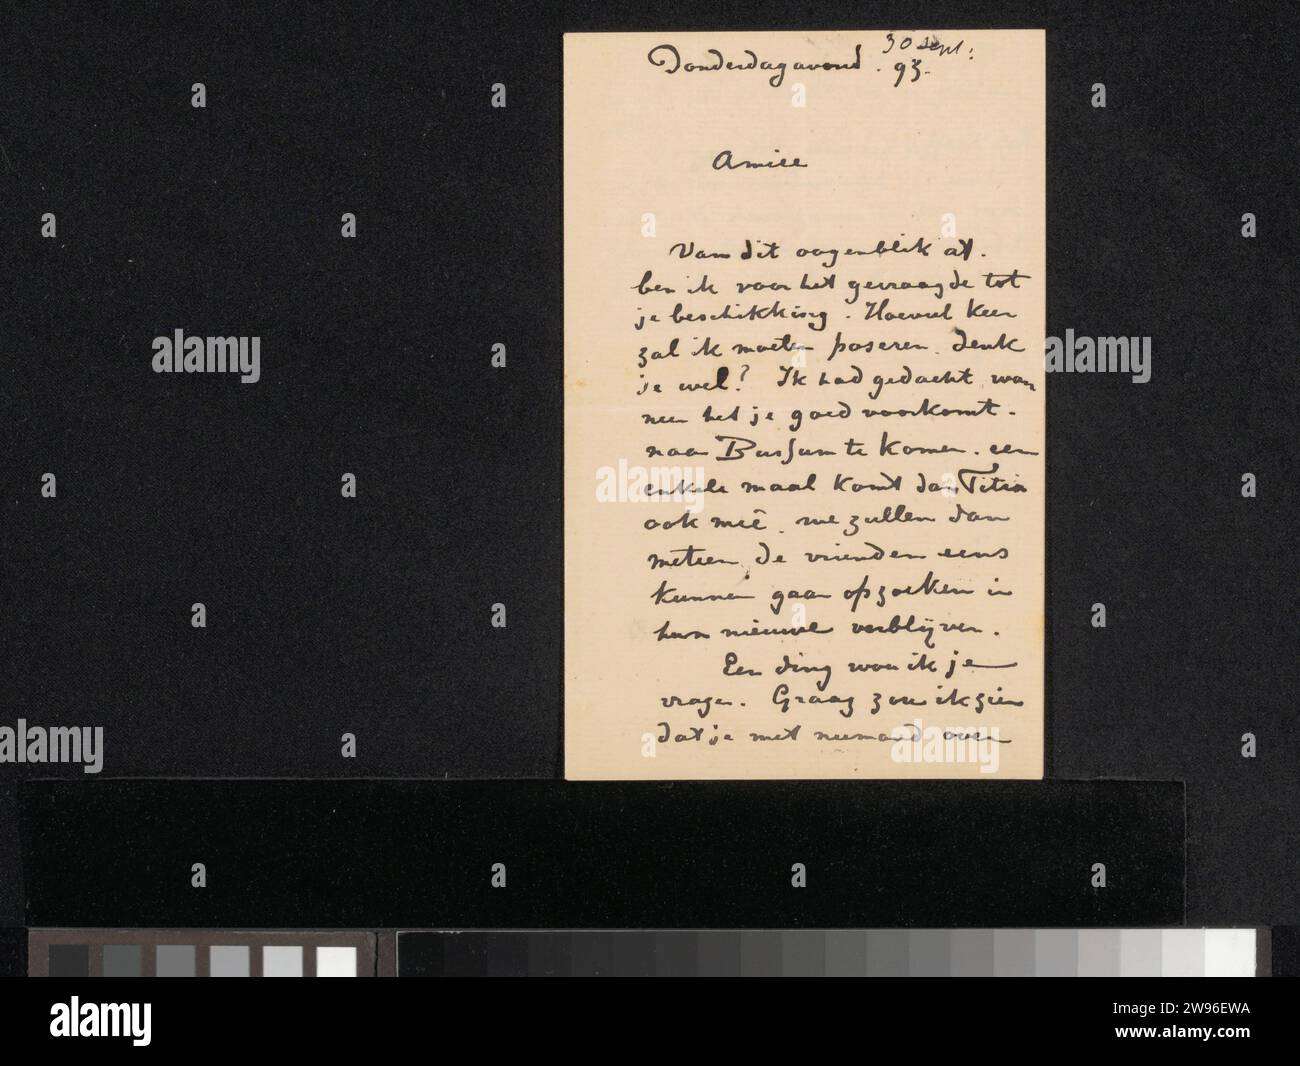 30 sept:
Donderdagavond. 93.
Amice
Van dit oogenblik af.
ben ik voor het gevraagde tot
je beschikking. Hoeveel keer
zal ik moeten poseren. denk
je wel? Ik had gedacht, wan
neer het je goed voorkomt.
naar Bussum te komen. een
enkele maal komt dan Titia
ook meê. we zullen dan
meteen de vrienden eens
kunnen gaan opzoeken in
hun nieuwe verblijven.
Een ding wou ik je
vragen. Graag zou ik zien
dat je met niemand over
alamy
Image ID: 2W96EWA
www.alamy.com